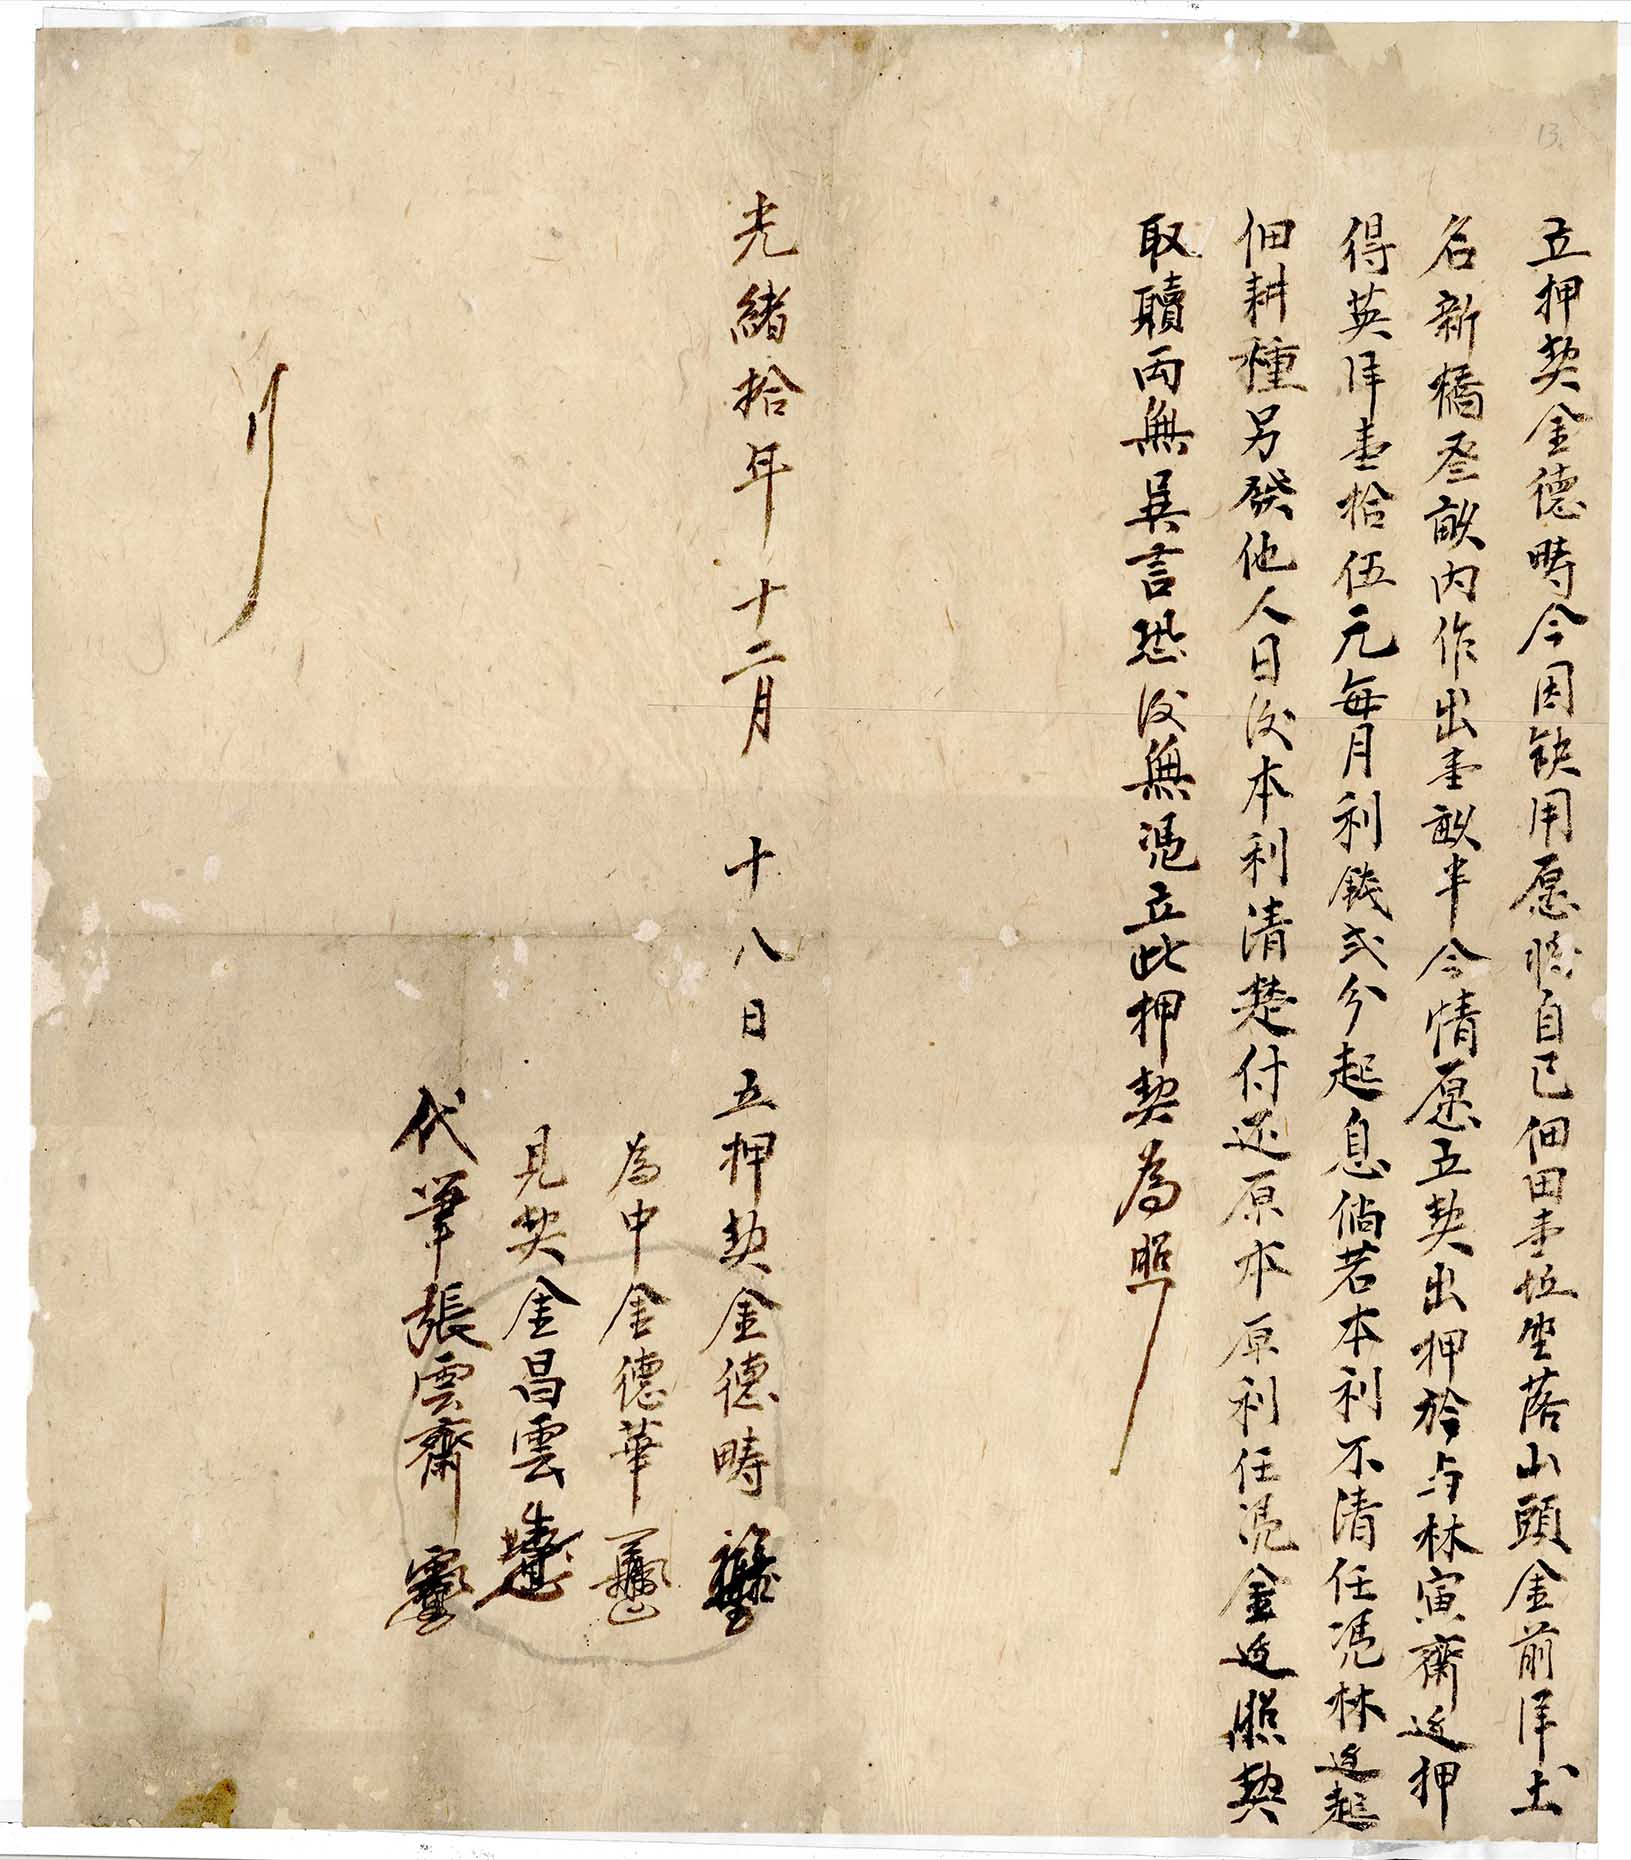 13
立押契金德畴今因缺用愿將自己佃田壹坵坐落山頭金前洋土
名新橋叁畝內作出壹畝半今情愿立契出押於与林寅齋边押
得英洋壹拾伍元每月利錢弍分起息倘若本利不清任凭林边起
佃耕種另發他人日後本利清楚付还原本原利任凭金边照契
取贖両無異言恐後無憑立此押契為照
光緒拾年十二月十八日立押契金德畴
為中金德華
見契金昌雲
代筆張雲齋